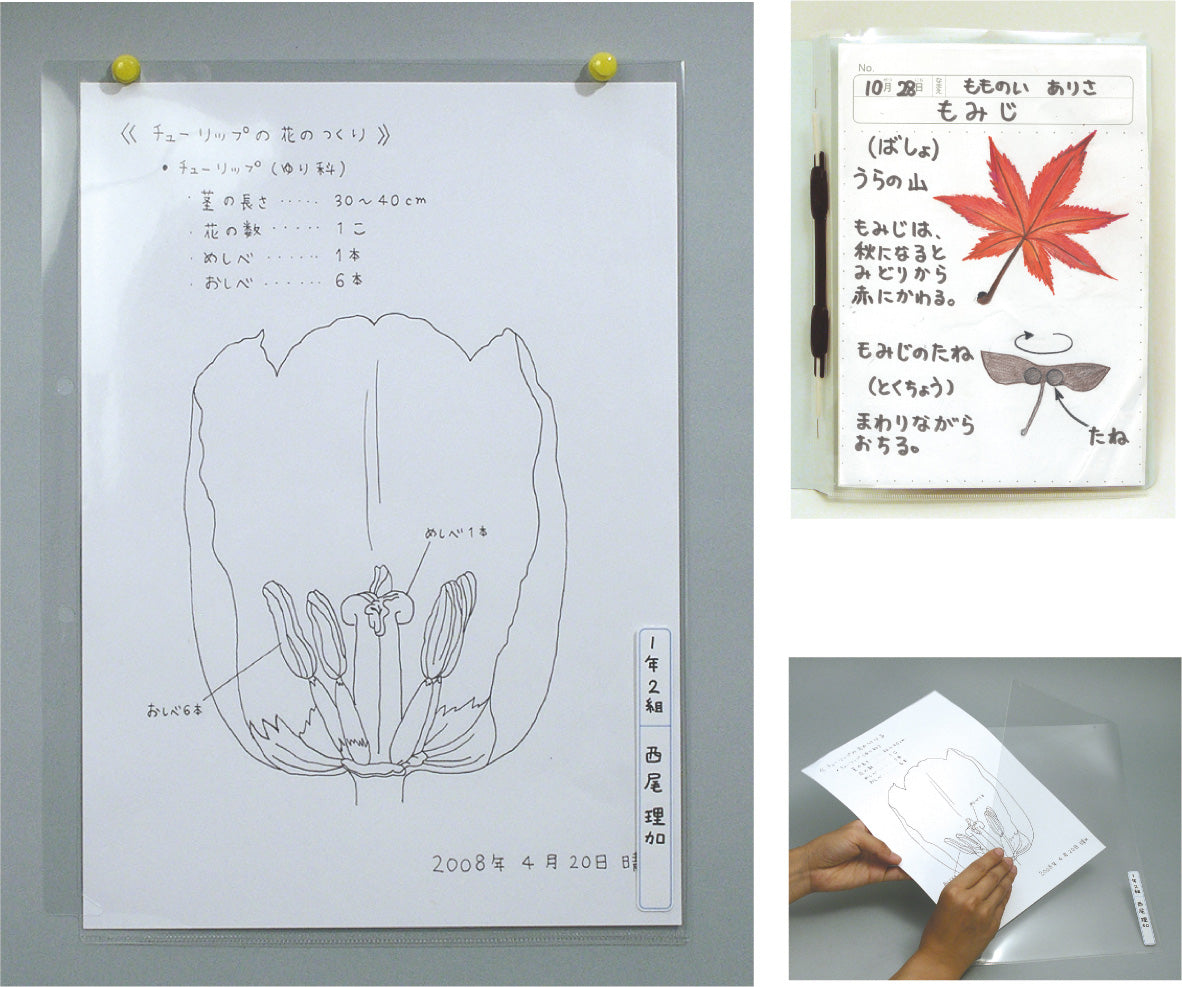 《 チューリップの花のつくり 》
・チューリップ(ゆり科)
・茎の長さ ・・・・・ 30〜40cm
・花の数 ・・・・・ 1こ
・めしべ ・・・・・・ 1本
・おしべ ・・・・・・ 6本
めしべ1本
おしべ6本
2008年 4月20日 晴
1年2組 西尾 理加
No.
10月 28日 なまえ もものい ありさ
もみじ
(ばしょ)
うらの山
もみじは、
秋になると
みどりから
赤にかわる。
もみじのたね
(とくちょう)
まわりながら
おちる。
たね
2008年 4月20日 晴
1年2組 西尾 理加